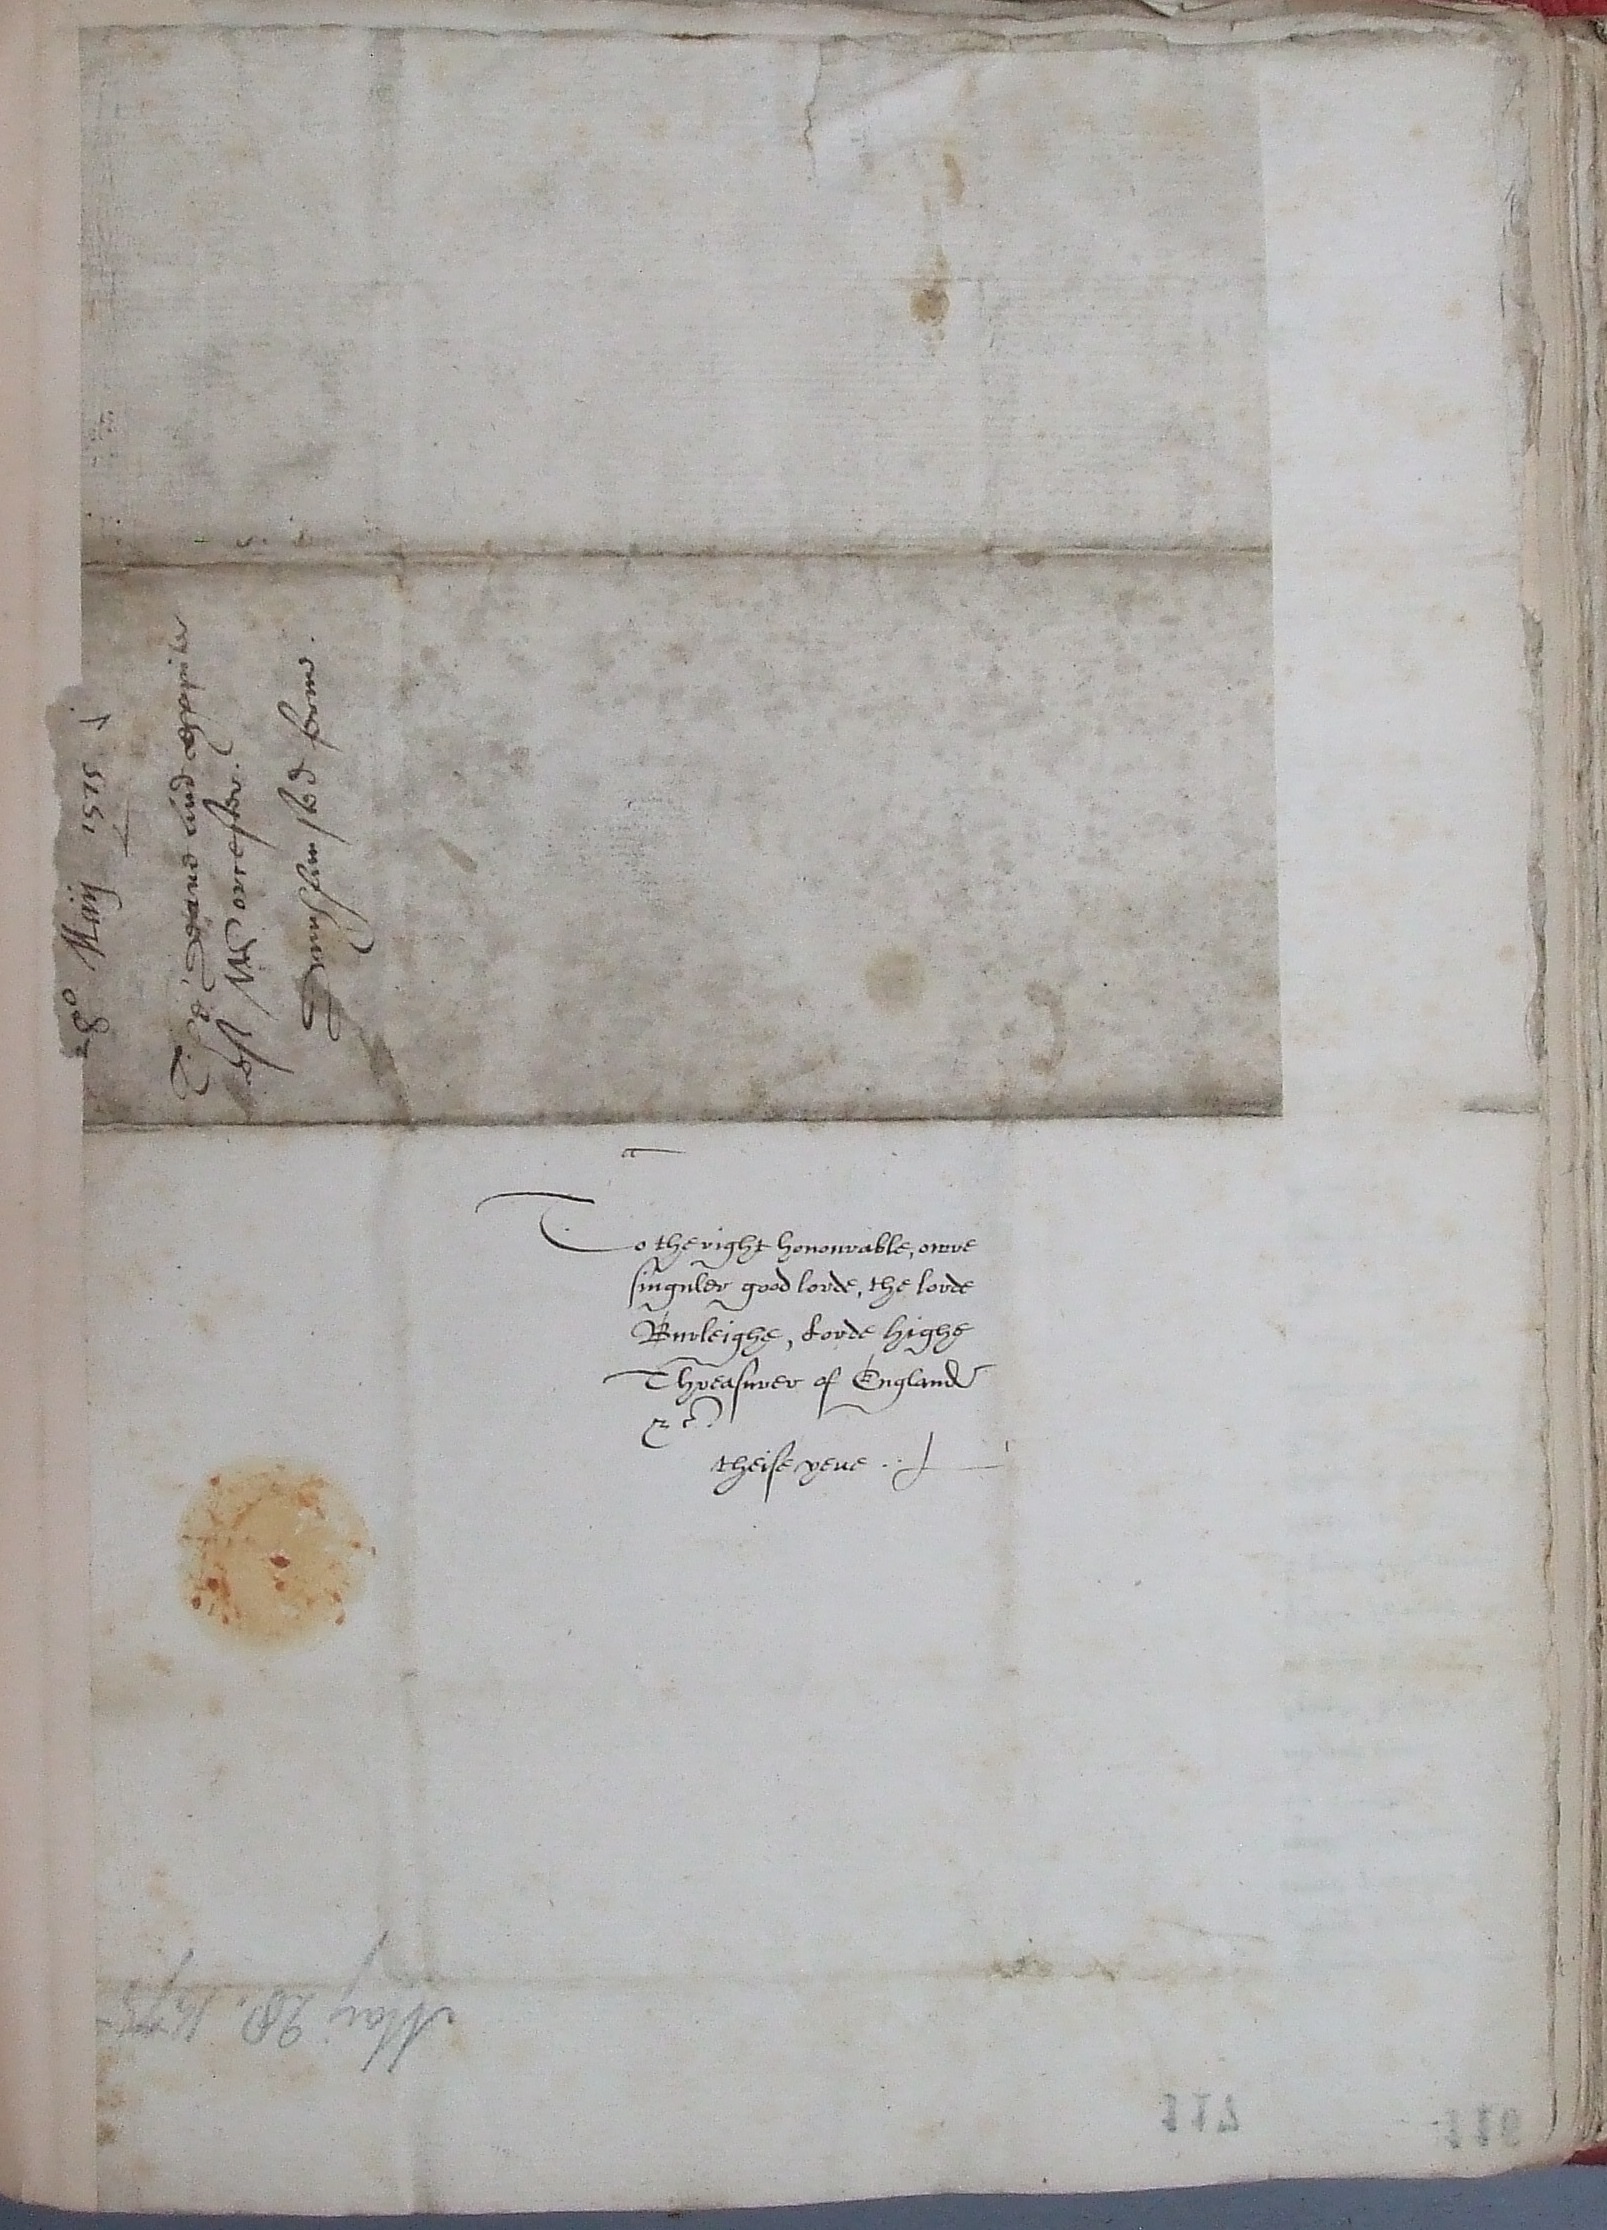 28o Maij 1575
The Deane and chapiter
of Worcester.
To the right honourable, owre
singuler good lorde, the lorde
Burleighe, Lorde highe
Threasurer of England
&c
theise yeve
May 28. 1575
117
116